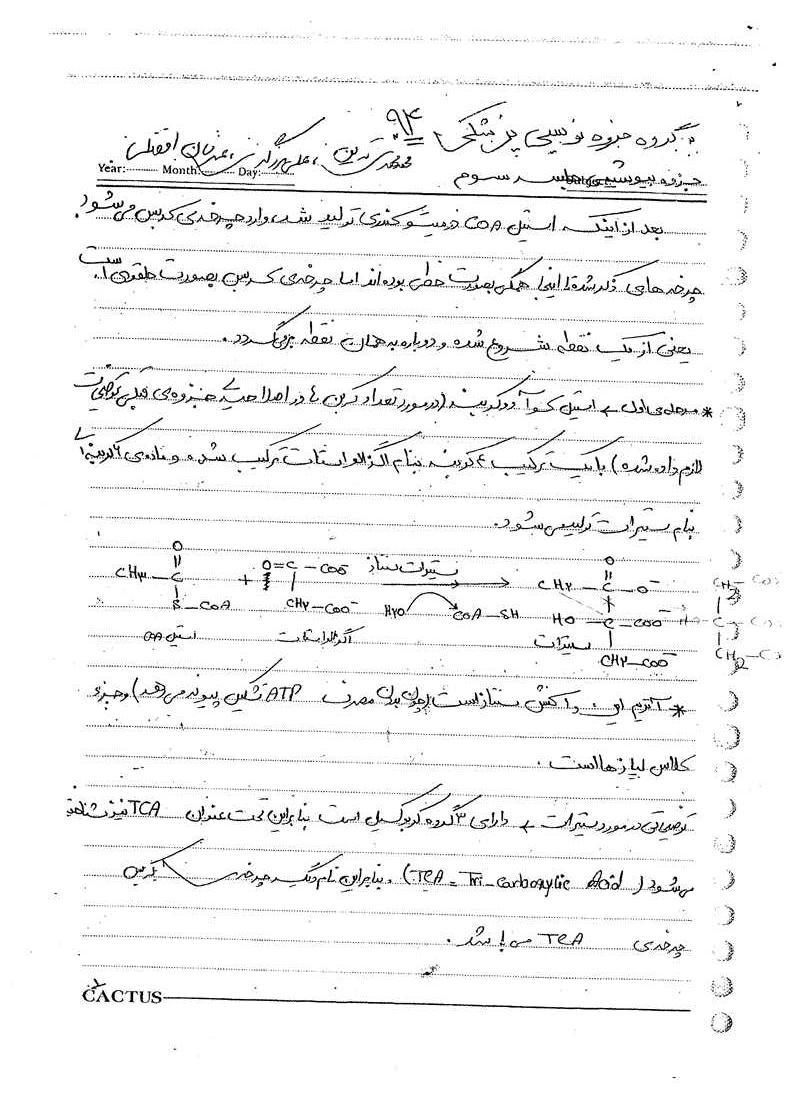 گروه جزوه نویسی پزشکی ۹۴
محمدی ، علی ، عرفان افضلی
Year: Month: Day:
جزوه بیوشیمی جلسه سوم
بعد از اینکه استیل COA در میتوکندری تولید شد، وارد چرخه‌ی کربس می‌شود
چرخه‌های ذکر شده تا اینجا همگی بصورت خطی بوده‌اند اما چرخه‌ی کربس بصورت حلقوی است
یعنی از یک نقطه شروع شده و دوباره به همان نقطه برمی‌گردد.
* مرحله‌ی اول ← استیل کوآ دو کربنه (در مورد تعداد کربن ها در جزوه‌ی قبلی توضیحات
لازم داده شده) با یک ترکیب ۴ کربنه بنام اگزالواستات ترکیب شده و ماده‌ی ۶ کربنه‌ای
بنام سیترات تولید می‌شود.
O O
CH۳ — C + O=C — COO⁻ سیترات سنتاز CH۲ — C — O⁻ CH₂ — CO
S — COA CH۲ — COO⁻ H۲O COA — SH HO — C — COO⁻ HO — C — CO
استیل COA اگزالواستات سیترات CH۲ — COO⁻ CH₂ — CO
* آنزیم این واکنش سنتاز است (چون بدون مصرف ATP تشکیل پیوند می‌دهد) و جزء
کلاس لیازها است.
توضیحاتی در مورد سیترات ← دارای ۳ گروه کربوکسیل است بنابراین تحت عنوان TCA نیز شناخته
می‌شود (TCA = Tri-carboxylic Acid). بنابراین نام دیگر چرخه‌ی کربس
چرخه‌ی TCA می‌باشد.
CACTUS